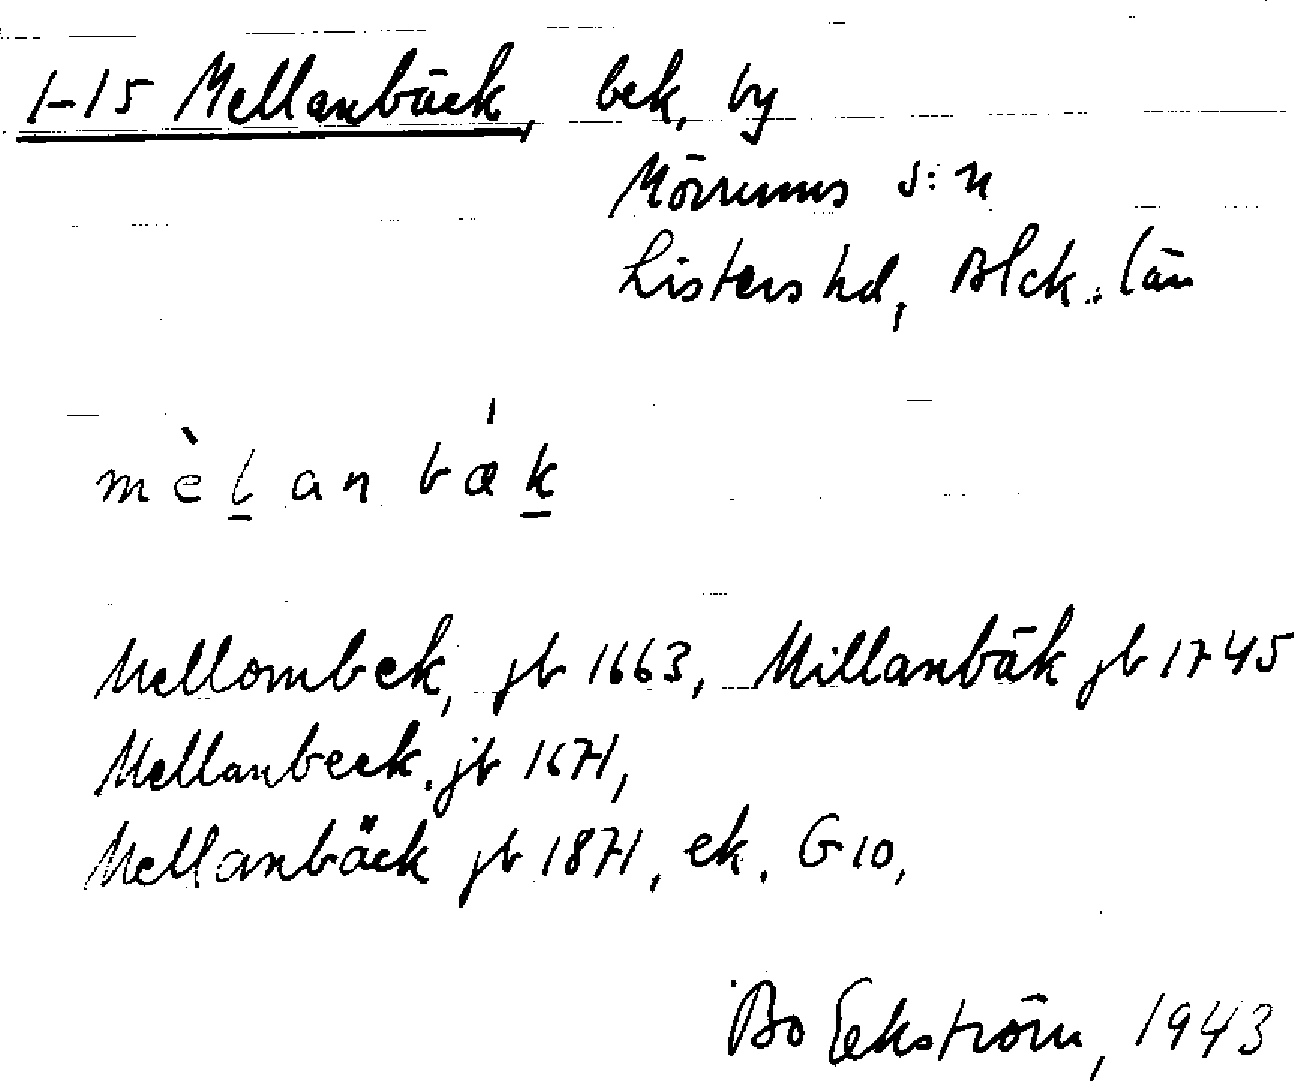 1-15 Mellanbäck, bek. by
Mörrums s:n
Listers hd, Blek. län
mèlanbǽk
Mellombek, jb 1663, Millanbäk jb 1745
Mellanbeek. jb 1671,
Mellanbäck jb 1871, ek. G10,
Bo Ekström, 1943